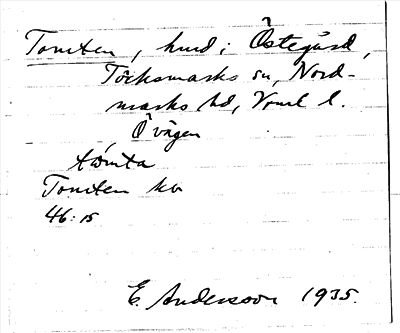 Tomten, hmd i Östegård,
Töcksmarks sn, Nord-
marks hd, Vrml l.
Övägen
tòmta
Tomten kv
46:15
E. Andersson 1935.